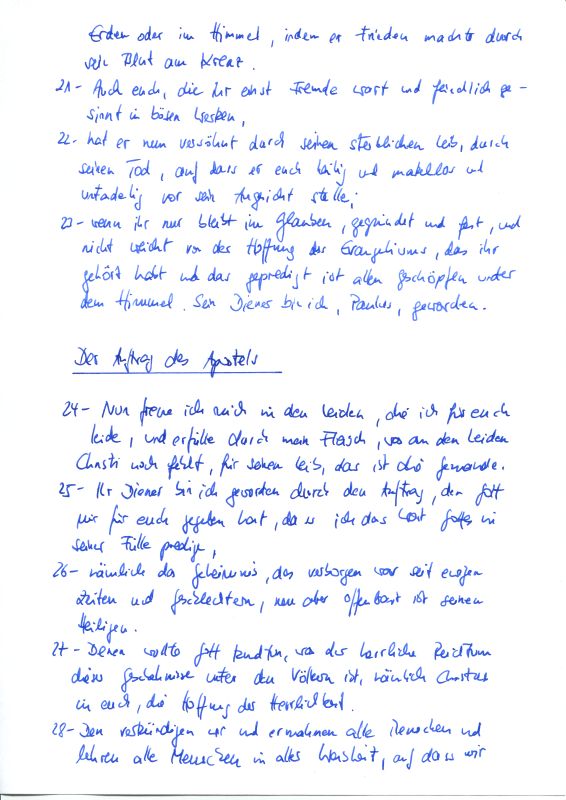 Erden oder im Himmel, indem er Frieden machte durch
sein Blut am Kreuz.
21- Auch euch, die ihr einst Fremde wart und feindlich ge-
sinnt in bösen Werken,
22- hat er nun versöhnt durch seinen sterblichen Leib, durch
seinen Tod, auf dass er euch heilig und makellos und
untadelig vor sein Angesicht stelle;
23- wenn ihr nur bleibt im Glauben, gegründet und fest, und
nicht weicht von der Hoffnung des Evangeliums, das ihr
gehört habt und das gepredigt ist allen Geschöpfen unter
dem Himmel. Sein Diener bin ich, Paulus, geworden.
Der Auftrag des Apostels
24- Nun freue ich mich in den Leiden, die ich für euch
leide, und erfülle durch mein Fleisch, was an den Leiden
Christi noch fehlt, für seinen Leib, das ist die Gemeinde.
25- Ihr Diener bin ich geworden durch den Auftrag, den Gott
mir für euch gegeben hat, dass ich das Wort Gottes in
seiner Fülle predige,
26- nämlich das Geheimnis, das verborgen war seit ewigen
Zeiten und Geschlechtern, nun aber offenbart ist seinen
Heiligen.
27- Denen wollte Gott kundtun, was der herrliche Reichtum
dieses Geheimnisses unter den Völkern ist, nämlich Christus
in euch, die Hoffnung der Herrlichkeit.
28- Den verkündigen wir und ermahnen alle Menschen und
lehren alle Menschen in aller Weisheit, auf dass wir